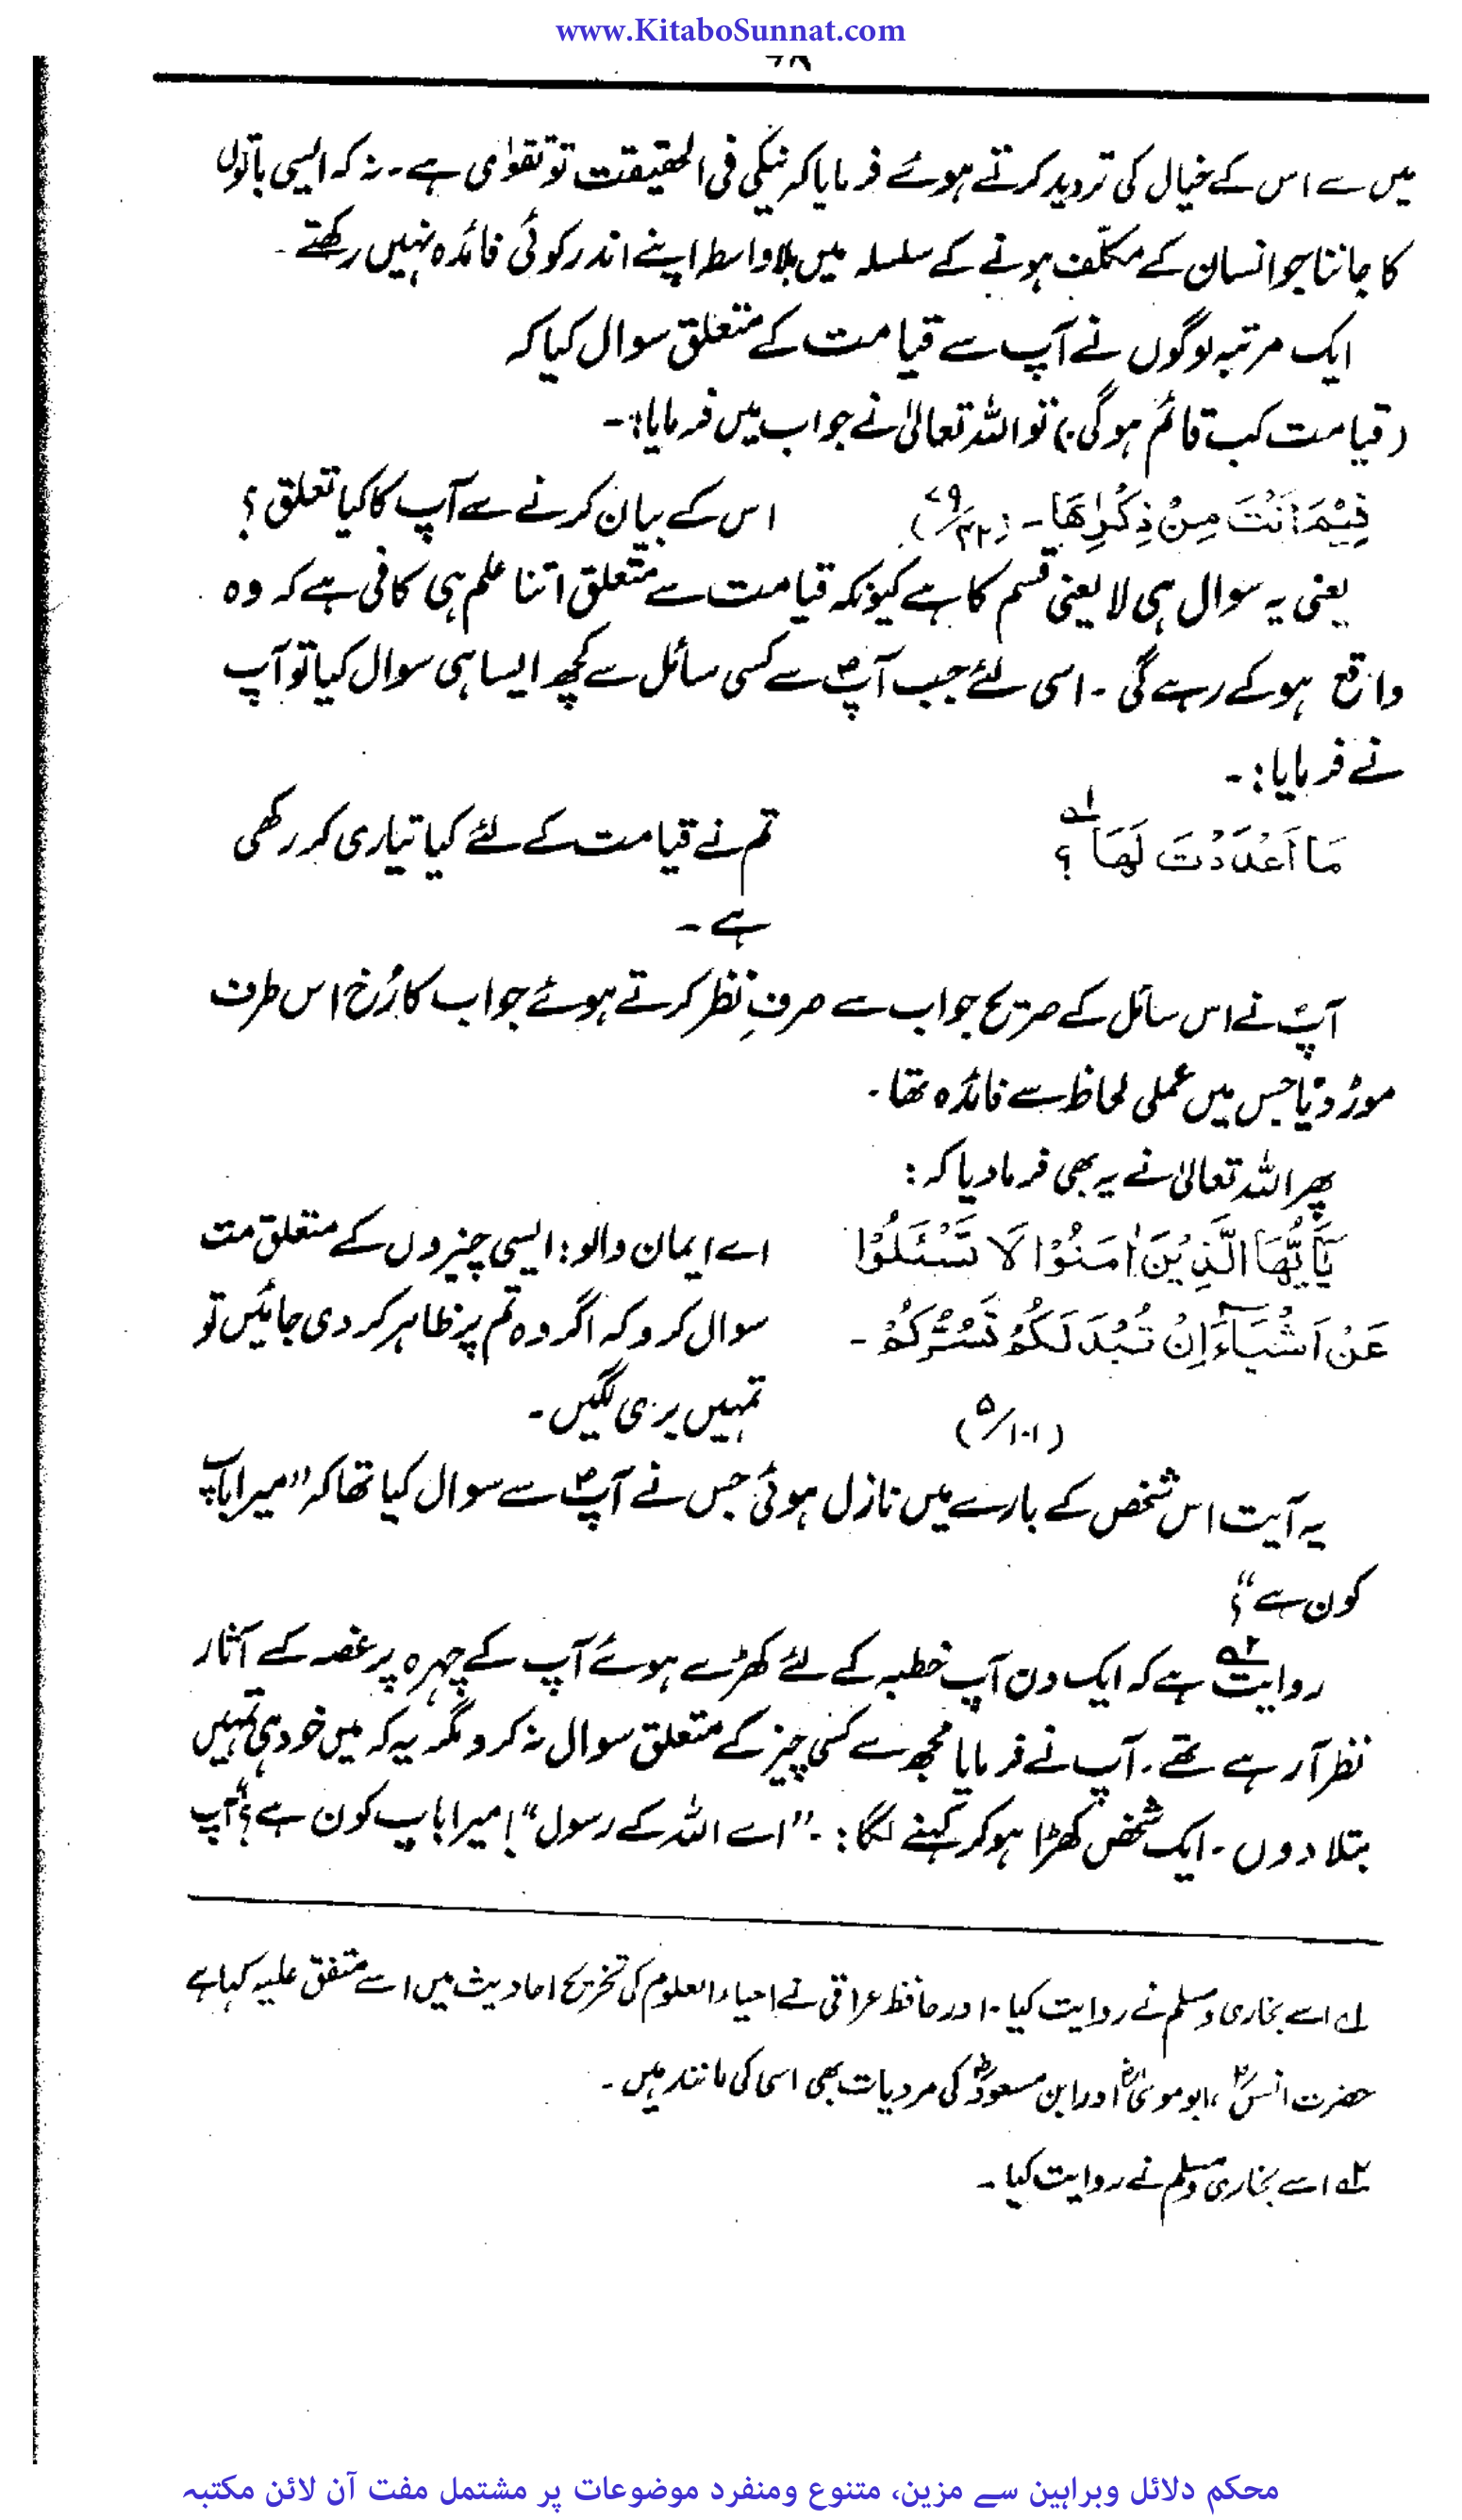 www.KitaboSunnat.com
میں سے اس کے خیال کی تردید کرتے ہوئے فرمایا کہ نیکی فی الحقیقت تو تقوٰی ہے۔ نہ کہ ایسی باتوں
کا جاننا جو انسان کے مکلّف ہونے کے سلسلہ میں بلاواسطہ اپنے اندر کوئی فائدہ نہیں رکھتے۔
ایک مرتبہ لوگوں نے آپ سے قیامت کے متعلق سوال کیا کہ
(قیامت کب قائم ہو گی؟) تو اللہ تعالیٰ نے جواب میں فرمایا:۔
فِيْمَ اَنْتَ مِنْ ذِكْرٰىهَا۔ (۷۹/۴۳) اس کے بیان کرنے سے آپ کا کیا تعلق؟
یعنی یہ سوال ہی لا یعنی قسم کا ہے کیونکہ قیامت سے متعلق اتنا علم ہی کافی ہے کہ وہ
واقع ہو کے رہے گی۔ اسی لئے جب آپؐ سے کسی سائل سے کچھ ایسا ہی سوال کیا تو آپ
نے فرمایا:۔
مَا اَعْدَدْتَ لَهَا ؟ ۱ تم نے قیامت کے لئے کیا تیاری کر رکھی
ہے۔
آپؐ نے اس سائل کے صریح جواب سے صرفِ نظر کرتے ہوئے جواب کا رُخ اس طرف
موڑ دیا جس میں عملی لحاظ سے فائدہ تھا۔
پھر اللہ تعالیٰ نے یہ بھی فرما دیا کہ:
يٰٓاَيُّهَا الَّذِيْنَ اٰمَنُوْا لَا تَسْئَلُوْا اے ایمان والو! ایسی چیزوں کے متعلق مت
عَنْ اَشْيَآءَ اِنْ تُبْدَ لَكُمْ تَسُؤْكُمْ۔ سوال کرو کہ اگر وہ تم پر ظاہر کر دی جائیں تو
(۵/۱۰۱) تمہیں بری لگیں۔
یہ آیت اس شخص کے بارے میں نازل ہوئی جس نے آپؐ سے سوال کیا تھا کہ ”میرا باپ
کون ہے“؟
روایت۲ ہے کہ ایک دن آپ خطبہ کے لئے کھڑے ہوئے آپ کے چہرہ پر غصہ کے آثار
نظر آ رہے تھے۔ آپ نے فرمایا مجھ سے کسی چیز کے متعلق سوال نہ کرو مگر یہ کہ میں خود ہی تمہیں
بتلا دوں۔ ایک شخص کھڑا ہو کر کہنے لگا:۔ ”اے اللہ کے رسول“! میرا باپ کون ہے؟“ آپ
۱ اسے بخاری و مسلم نے روایت کیا۔ اور حافظ عراقی نے احیاء العلوم کی تخریج احادیث میں اسے متفق علیہ کہا ہے
حضرت انسؓ، ابوموسیٰؓ اور ابن مسعودؓ کی مرویات بھی اسی کی مانند ہیں۔
۲ اسے بخاری و مسلم نے روایت کیا۔
محکم دلائل وبراہین سے مزین، متنوع ومنفرد موضوعات پر مشتمل مفت آن لائن مکتبہ